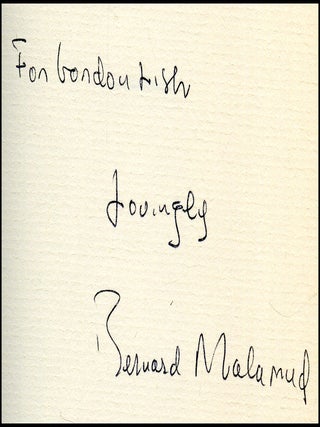 For Gordon Lish
Lovingly
Bernard Malamud